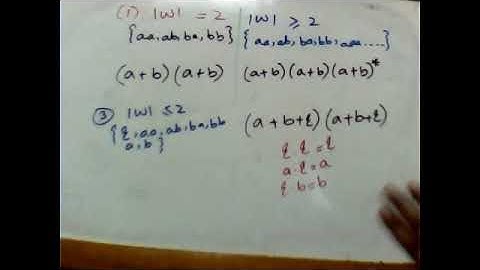 (1) |w| = 2
{aa, ab, ba, bb}
(a+b) (a+b)
|w| ≥ 2
{aa, ab, ba, bb, aaa .....}
(a+b) (a+b) (a+b)*
③ |w| ≤ 2
{ε, aa, ab, ba, bb
a, b }
(a+b+ε) (a+b+ε)
ε ε = ε
a·ε = a
ε b = b